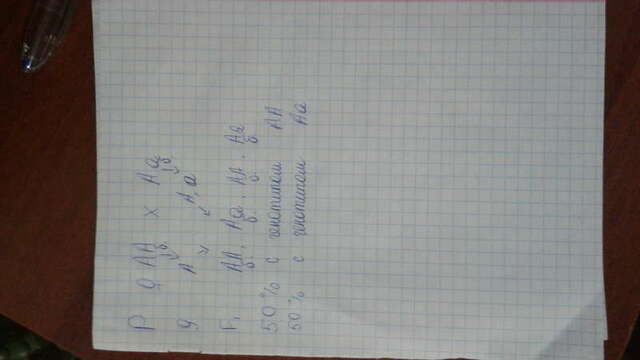 P ♀ AA x Aa
g A A, a
F₁ AA, Aa, AA, Aa
50% с генотипом AA
50% с генотипом Aa